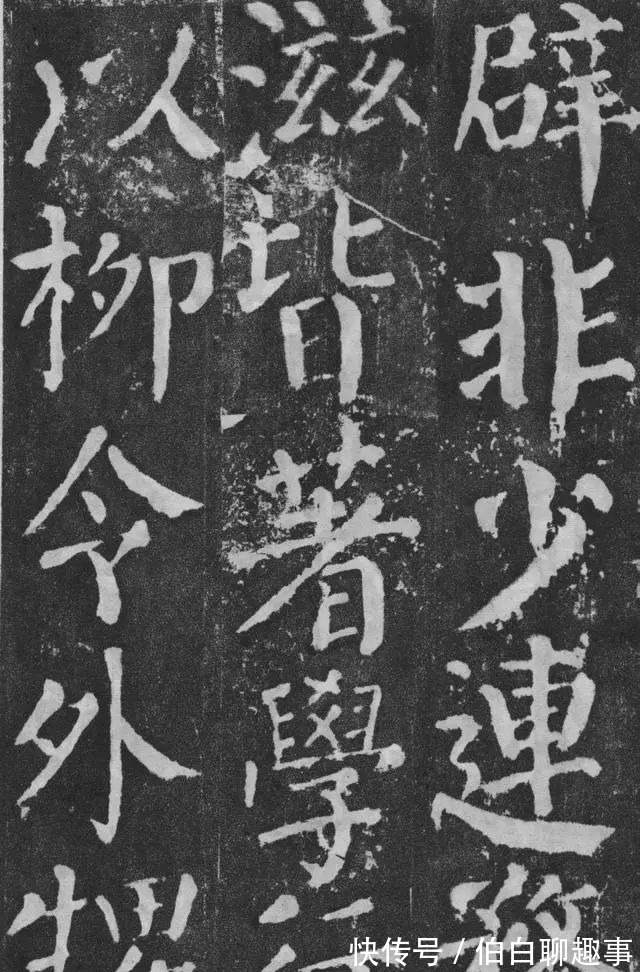 辟非少連
滋皆著學
以柳令外
快传号/伯白聊趣事